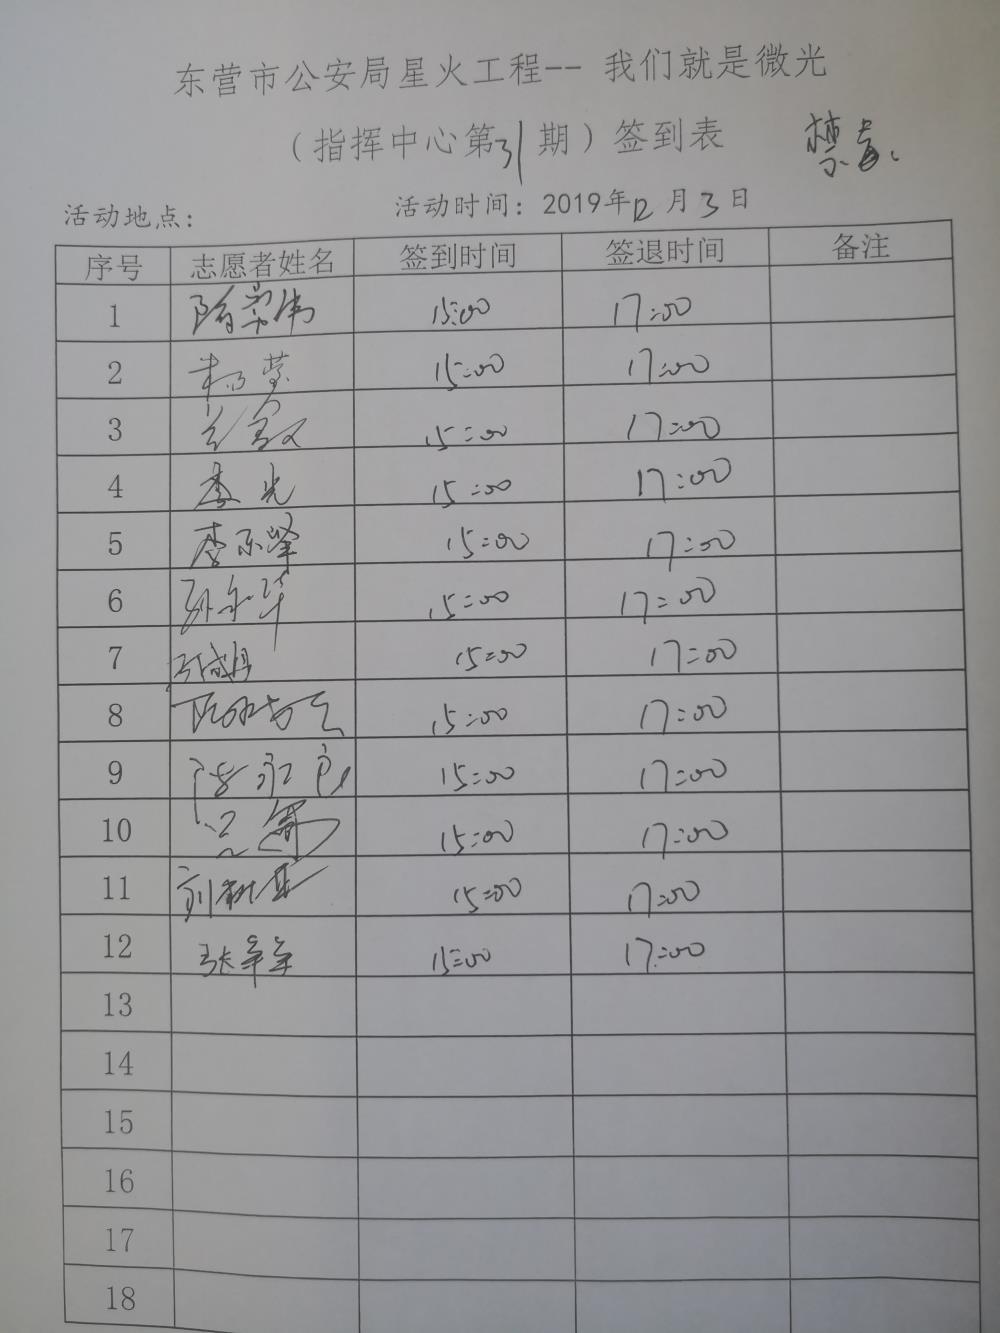 东营市公安局星火工程-- 我们就是微光
（指挥中心第31期）签到表 禁毒
活动地点： 活动时间：2019年12月3日
序号 志愿者姓名 签到时间 签退时间 备注
1 隋荣伟 15:00 17:00
2 15:00 17:00
3 15:00 17:00
4 李光 15:00 17:00
5 李东峰 15:00 17:00
6 孙永华 15:00 17:00
7 15:00 17:00
8 15:00 17:00
9 陈永良 15:00 17:00
10 15:00 17:00
11 15:00 17:00
12 张军军 15:00 17:00
13
14
15
16
17
18